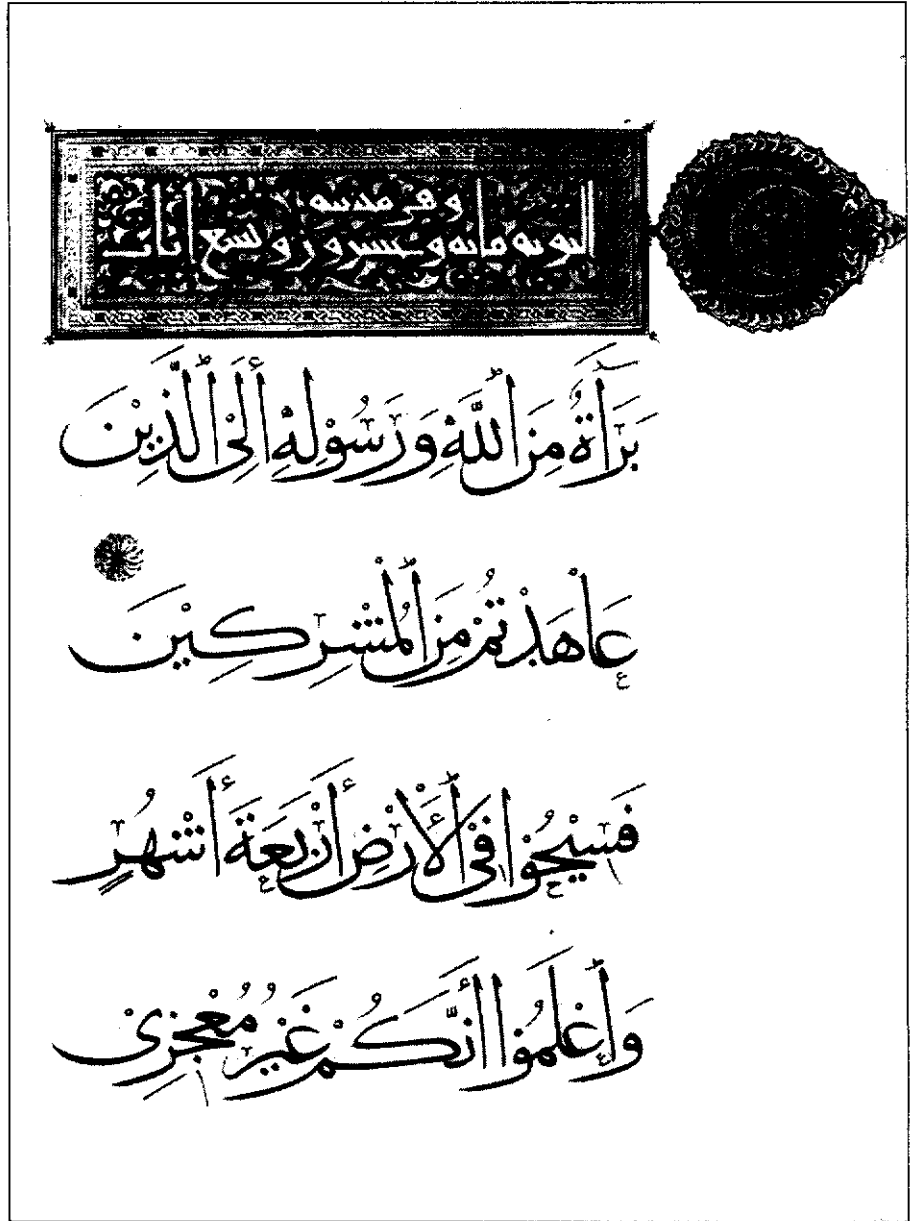 وهي مدنية
التوبة مائة وعشرون وتسع آيات
بَرَآءَةٌ مِنَ ٱللَّهِ وَرَسُوْلِهِ إِلَى ٱلَّذِيْنَ
عَاهَدْتُمْ مِنَ ٱلْمُشْرِكِيْنَ
فَسِيْحُوْا فِى ٱلْأَرْضِ أَرْبَعَةَ أَشْهُرٍ
وَٱعْلَمُوْا أَنَّكُمْ غَيْرُ مُعْجِزِى